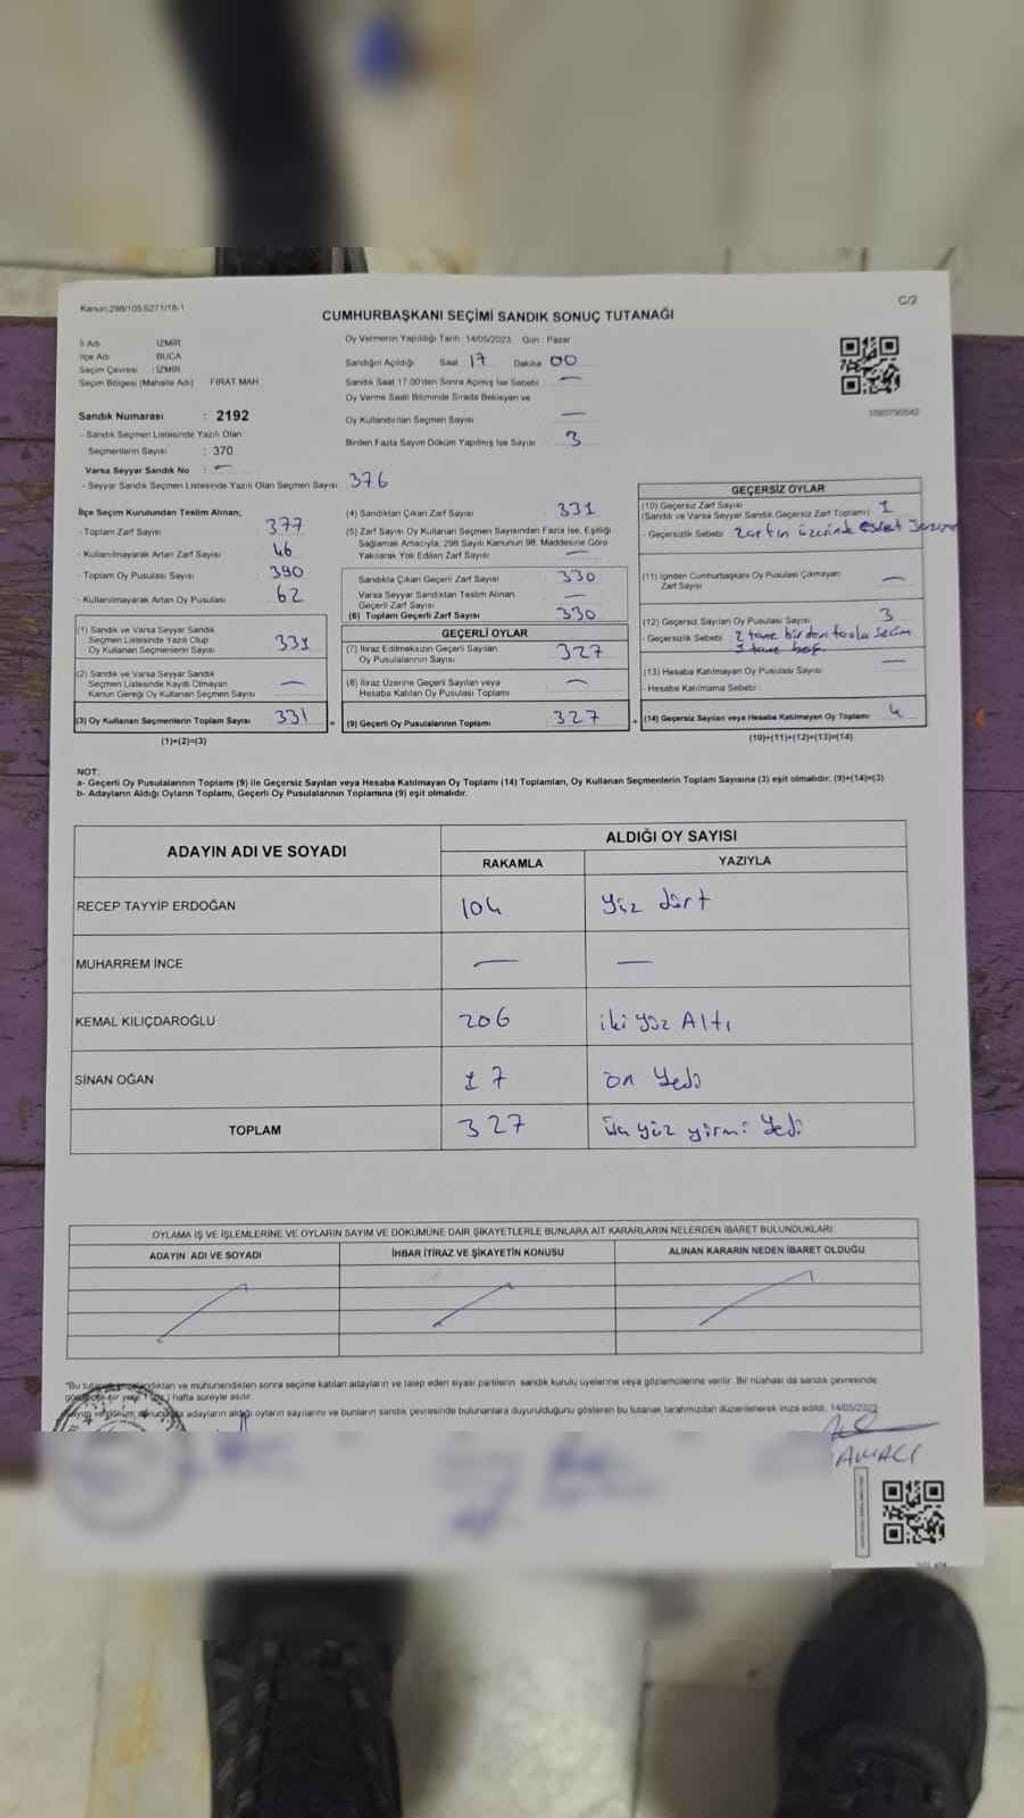 Kanun:298/105;6271/18-1
C/2
CUMHURBAŞKANI SEÇİMİ SANDIK SONUÇ TUTANAĞI
İl Adı : İZMİR
İlçe Adı : BUCA
Seçim Çevresi : İZMİR
Seçim Bölgesi (Mahalle Adı) : FIRAT MAH.
Sandık Numarası : 2192
- Sandık Seçmen Listesinde Yazılı Olan
Seçmenlerin Sayısı : 370
Varsa Seyyar Sandık No : —
- Seyyar Sandık Seçmen Listesinde Yazılı Olan Seçmen Sayısı 376
Oy Vermenin Yapıldığı Tarih: 14/05/2023 Gün : Pazar
Sandığın Açıldığı Saat : 17 Dakika : 00
Sandık Saat 17.00'den Sonra Açılmış İse Sebebi : —
Oy Verme Saati Bitiminde Sırada Bekleyen ve
Oy Kullandırılan Seçmen Sayısı : —
Birden Fazla Sayım Döküm Yapılmış İse Sayısı : 3
İlçe Seçim Kurulundan Teslim Alınan;
- Toplam Zarf Sayısı : 377
- Kullanılmayarak Artan Zarf Sayısı : 46
- Toplam Oy Pusulası Sayısı : 390
- Kullanılmayarak Artan Oy Pusulası : 62
(1) Sandık ve Varsa Seyyar Sandık
Seçmen Listesinde Yazılı Olup
Oy Kullanan Seçmenlerin Sayısı 331
(2) Sandık ve Varsa Seyyar Sandık
Seçmen Listesinde Kayıtlı Olmayan
Kanun Gereği Oy Kullanan Seçmen Sayısı —
(3) Oy Kullanan Seçmenlerin Toplam Sayısı 331
(1)+(2)=(3)
(4) Sandıktan Çıkan Zarf Sayısı : 331
(5) Zarf Sayısı Oy Kullanan Seçmen Sayısından Fazla İse, Eşitliği
Sağlamak Amacıyla, 298 Sayılı Kanunun 98. Maddesine Göre
Yakılarak Yok Edilen Zarf Sayısı : —
Sandıkta Çıkan Geçerli Zarf Sayısı 330
Varsa Seyyar Sandıktan Teslim Alınan
Geçerli Zarf Sayısı —
(6) Toplam Geçerli Zarf Sayısı 330
GEÇERLİ OYLAR
(7) İtiraz Edilmeksizin Geçerli Sayılan
Oy Pusulasının Sayısı 327
(8) İtiraz Üzerine Geçerli Sayılan veya
Hesaba Katılan Oy Pusulası Toplamı —
(9) Geçerli Oy Pusulalarının Toplamı 327
GEÇERSİZ OYLAR
(10) Geçersiz Zarf Sayısı : 1
(Sandık ve Varsa Seyyar Sandık Geçersiz Zarf Toplamı)
- Geçersizlik Sebebi : Zarfın üzerinde
(11) İçinden Cumhurbaşkanı Oy Pusulası Çıkmayan
Zarf Sayısı —
(12) Geçersiz Sayılan Oy Pusulası Sayısı : 3
- Geçersizlik Sebebi : 2 tane birden fazla seçim
1 tane boş
(13) Hesaba Katılmayan Oy Pusulası Sayısı : —
- Hesaba Katılmama Sebebi :
(14) Geçersiz Sayılan veya Hesaba Katılmayan Oy Toplamı 4
(10)+(11)+(12)+(13)=(14)
NOT:
a- Geçerli Oy Pusulalarının Toplamı (9) ile Geçersiz Sayılan veya Hesaba Katılmayan Oy Toplamı (14) Toplamları, Oy Kullanan Seçmenlerin Toplam Sayısına (3) eşit olmalıdır. (9)+(14)=(3)
b- Adayların Aldığı Oyların Toplamı, Geçerli Oy Pusulalarının Toplamına (9) eşit olmalıdır.
ADAYIN ADI VE SOYADI
ALDIĞI OY SAYISI
RAKAMLA YAZIYLA
RECEP TAYYİP ERDOĞAN 104 Yüz dört
MUHARREM İNCE — —
KEMAL KILIÇDAROĞLU 206 iki yüz Altı
SİNAN OĞAN 17 on Yedi
TOPLAM 327 üç yüz yirmi Yedi
OYLAMA İŞ VE İŞLEMLERİNE VE OYLARIN SAYIM VE DÖKÜMÜNE DAİR ŞİKAYETLERLE BUNLARA AİT KARARLARIN NELERDEN İBARET BULUNDUKLARI
ADAYIN ADI VE SOYADI İHBAR İTİRAZ VE ŞİKAYETİN KONUSU ALINAN KARARIN NEDEN İBARET OLDUĞU
"Bu ve mühürlendikten sonra seçime katılan adayların ve talep eden siyasi partilerin sandık kurulu üyelerine veya gözlemcilerine verilir. Bir nüshası da sandık çevresinde
hafta süreyle asılır.
adayların aldığı oyların sayılarını ve bunların sandık çevresinde bulunanlara duyurulduğunu gösteren bu tutanak tarafımızdan düzenlenerek imza edildi. 14/05/2023